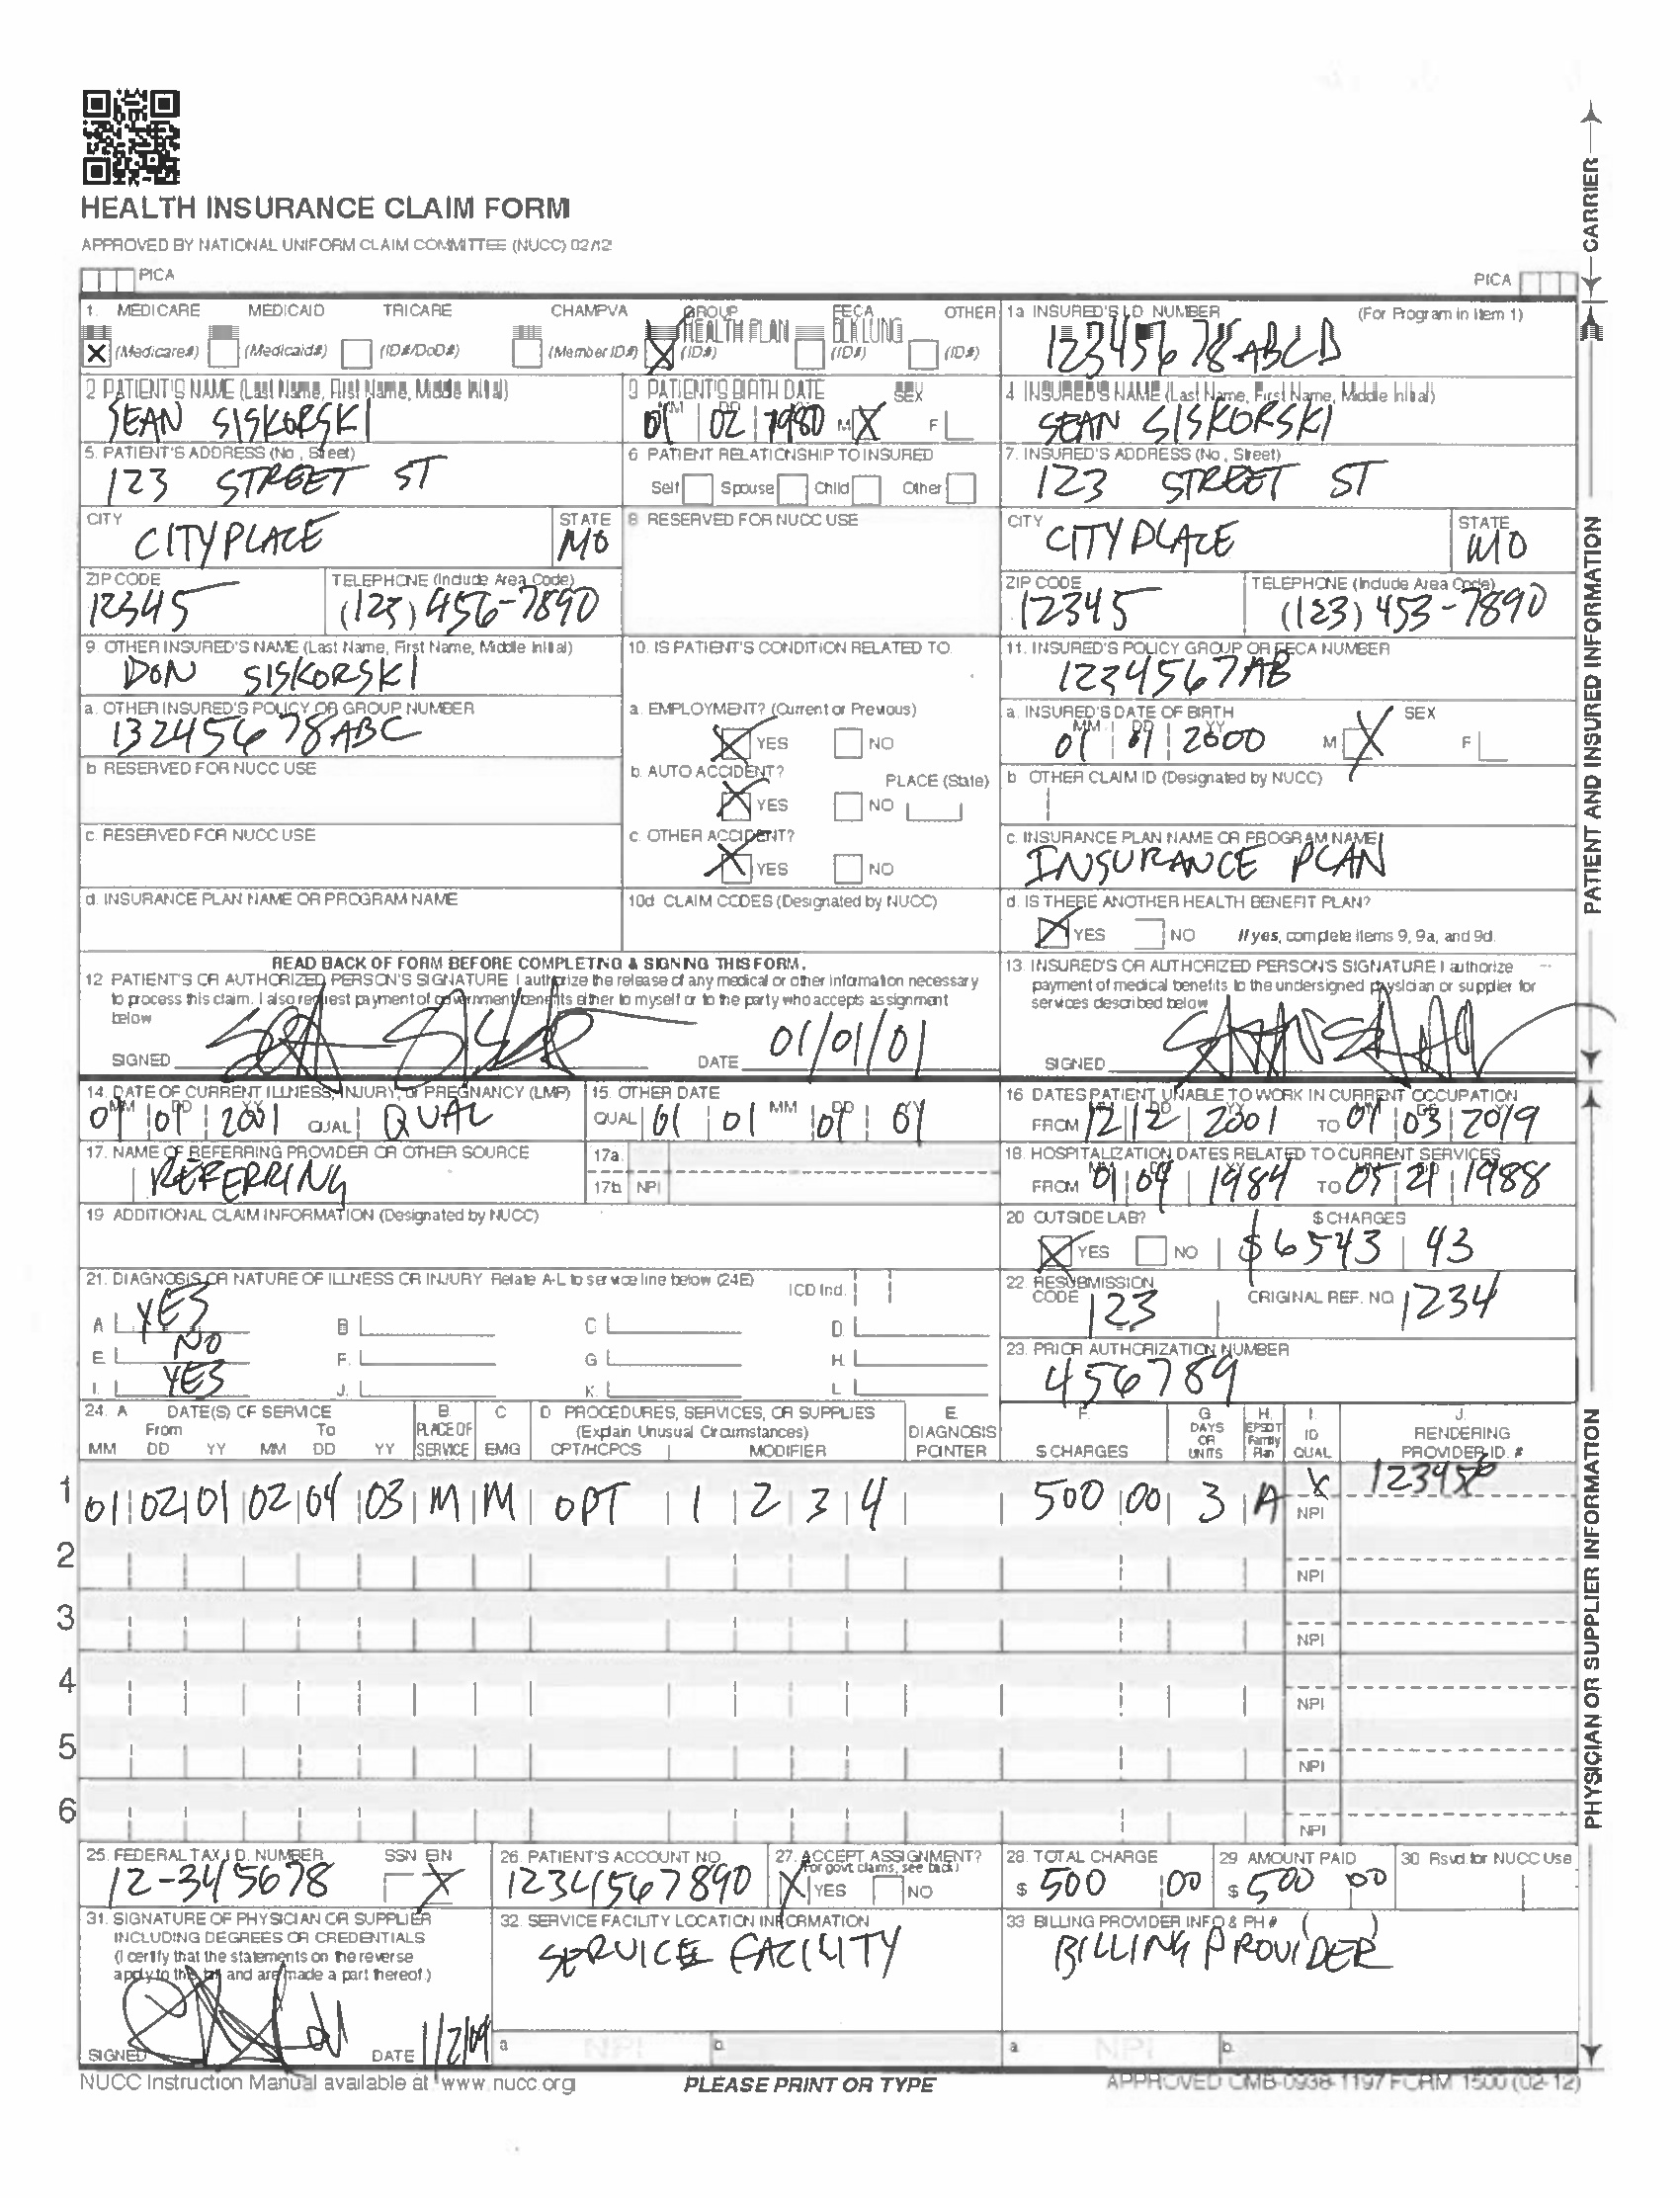 HEALTH INSURANCE CLAIM FORM
APPROVED BY NATIONAL UNIFORM CLAIM COMMITTEE (NUCC) 02/12
PICA
PICA
CARRIER
1. MEDICARE MEDICAID TRICARE CHAMPVA GROUP HEALTH PLAN FECA BLK LUNG OTHER
(Medicare#) (Medicaid#) (ID#/DoD#) (Member ID#) (ID#) (ID#) (ID#)
1a INSURED'S I.D. NUMBER (For Program in Item 1)
12345678ABCD
2 PATIENT'S NAME (Last Name, First Name, Middle Initial)
SEAN SISKORSKI
3 PATIENT'S BIRTH DATE SEX
MM DD
01 02 1980 M X F
4 INSURED'S NAME (Last Name, First Name, Middle Initial)
SEAN SISKORSKI
5. PATIENT'S ADDRESS (No., Street)
123 STREET ST
6 PATIENT RELATIONSHIP TO INSURED
Self Spouse Child Other
7. INSURED'S ADDRESS (No., Street)
123 STREET ST
CITY STATE
CITYPLACE MO
8 RESERVED FOR NUCC USE
CITY STATE
CITYPLACE MO
ZIP CODE TELEPHONE (Include Area Code)
12345 (123) 456-7890
ZIP CODE TELEPHONE (Include Area Code)
12345 (123) 453-7890
9. OTHER INSURED'S NAME (Last Name, First Name, Middle Initial)
DON SISKORSKI
10. IS PATIENT'S CONDITION RELATED TO
11. INSURED'S POLICY GROUP OR FECA NUMBER
1234567AB
a. OTHER INSURED'S POLICY OR GROUP NUMBER
13245678ABC
a. EMPLOYMENT? (Current or Previous)
X YES NO
a. INSURED'S DATE OF BIRTH SEX
MM DD YY
01 01 2000 M X F
b RESERVED FOR NUCC USE
b. AUTO ACCIDENT? PLACE (State)
X YES NO
b OTHER CLAIM ID (Designated by NUCC)
c. RESERVED FOR NUCC USE
c. OTHER ACCIDENT?
X YES NO
c. INSURANCE PLAN NAME OR PROGRAM NAME
INSURANCE PLAN
d. INSURANCE PLAN NAME OR PROGRAM NAME
10d CLAIM CODES (Designated by NUCC)
d. IS THERE ANOTHER HEALTH BENEFIT PLAN?
X YES NO If yes, complete items 9, 9a, and 9d.
PATIENT AND INSURED INFORMATION
READ BACK OF FORM BEFORE COMPLETING & SIGNING THIS FORM.
12 PATIENT'S OR AUTHORIZED PERSON'S SIGNATURE I authorize the release of any medical or other information necessary
to process this claim. I also request payment of government benefits either to myself or to the party who accepts assignment
below
SIGNED DATE 01/01/01
13. INSURED'S OR AUTHORIZED PERSON'S SIGNATURE I authorize
payment of medical benefits to the undersigned physician or supplier for
services described below
SIGNED
14. DATE OF CURRENT ILLNESS, INJURY, or PREGNANCY (LMP)
MM DD YY
01 01 2001 QUAL QUAL
15. OTHER DATE
MM DD YY
QUAL 01 01 01 01
16 DATES PATIENT UNABLE TO WORK IN CURRENT OCCUPATION
FROM 12 12 2001 TO 01 03 2019
17. NAME OF REFERRING PROVIDER OR OTHER SOURCE
REFERRING
17a.
17b NPI
18. HOSPITALIZATION DATES RELATED TO CURRENT SERVICES
FROM 01 04 1984 TO 05 21 1988
19 ADDITIONAL CLAIM INFORMATION (Designated by NUCC)
20 OUTSIDE LAB? $ CHARGES
X YES NO $6543 43
21. DIAGNOSIS OR NATURE OF ILLNESS OR INJURY Relate A-L to service line below (24E) ICD Ind.
A YES B C D.
NO
E. F. G H.
YES
I. J. K. L
22. RESUBMISSION
CODE ORIGINAL REF. NO.
123 1234
23. PRIOR AUTHORIZATION NUMBER
456789
24. A DATE(S) OF SERVICE B C D PROCEDURES, SERVICES, OR SUPPLIES E. F. G H. I. J.
From To PLACE OF (Explain Unusual Circumstances) DIAGNOSIS DAYS OR UNITS EPSDT Family Plan ID RENDERING
MM DD YY MM DD YY SERVICE EMG CPT/HCPCS MODIFIER POINTER $ CHARGES QUAL PROVIDER ID. #
X 123456
1 01 02 01 02 04 03 M M OPT 1 2 3 4 500 00 3 A NPI
2 NPI
3 NPI
4 NPI
5 NPI
6 NPI
PHYSICIAN OR SUPPLIER INFORMATION
25. FEDERAL TAX I.D. NUMBER SSN EIN
12-345678 X
26. PATIENT'S ACCOUNT NO
1234567890
27. ACCEPT ASSIGNMENT?
(For govt claims, see back)
X YES NO
28. TOTAL CHARGE
$ 500 00
29 AMOUNT PAID
$ 500 00
30 Rsvd for NUCC Use
31. SIGNATURE OF PHYSICIAN OR SUPPLIER
INCLUDING DEGREES OR CREDENTIALS
(I certify that the statements on the reverse
apply to this bill and are made a part thereof.)
SIGNED DATE 1/2/09
32. SERVICE FACILITY LOCATION INFORMATION
SERVICE FACILITY
a. NPI b.
33 BILLING PROVIDER INFO & PH # ( )
BILLING PROVIDER
a. NPI b.
NUCC Instruction Manual available at www.nucc.org
PLEASE PRINT OR TYPE
APPROVED OMB-0938-1197 FORM 1500 (02-12)